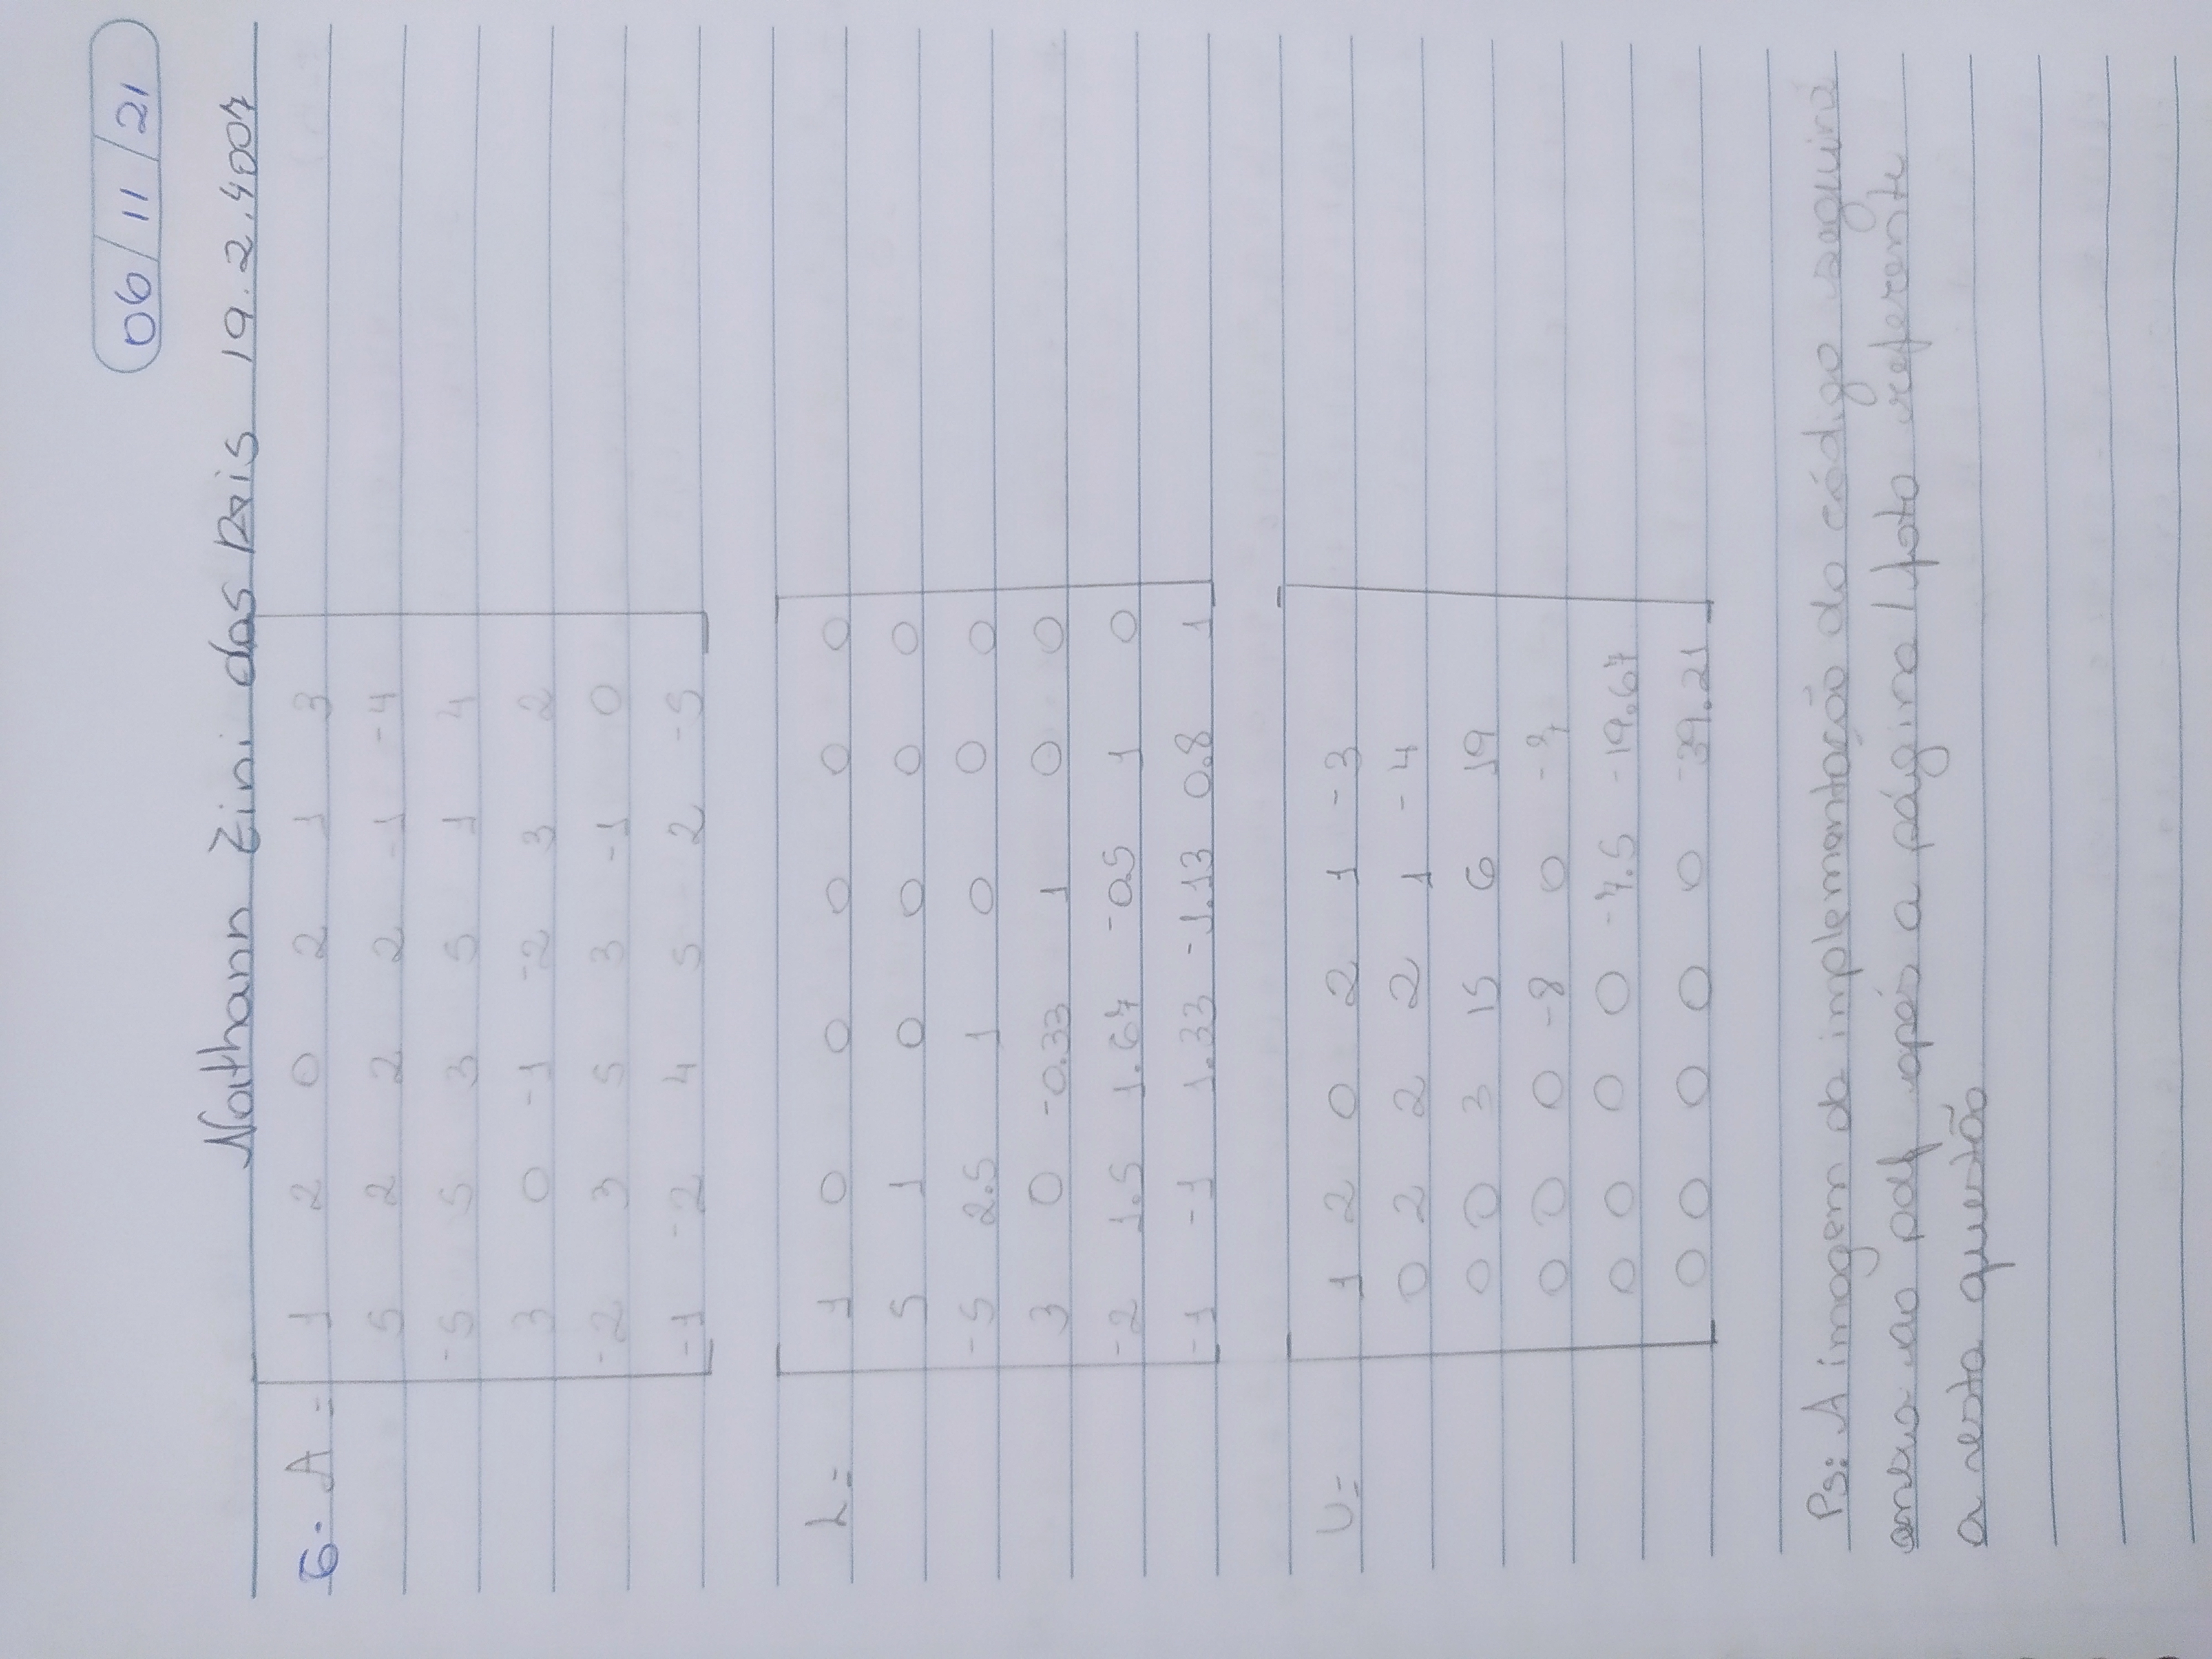 06/11/21
Nathann Zini dos Reis 19.2.4007
6. A = 1 2 0 2 1 3
5 2 2 2 -1 -4
-5 5 3 5 1 4
3 0 -1 -2 3 2
-2 3 5 3 -1 0
-1 -2 4 5 2 -5
L = 1 0 0 0 0 0
5 1 0 0 0 0
-5 2.5 1 0 0 0
3 0 -0.33 1 0 0
-2 1.5 1.67 -0.5 1 0
-1 -1 1.33 -1.13 0.8 1
U = 1 2 0 2 1 -3
0 2 2 2 1 -4
0 0 3 15 6 19
0 0 0 -8 0
0 0 0 0 -7.5 -19.67
0 0 0 0 0 -39.21
Ps: A imagem da implementação do código seguirá
anexo ao pdf após a página/foto referente
a esta questão